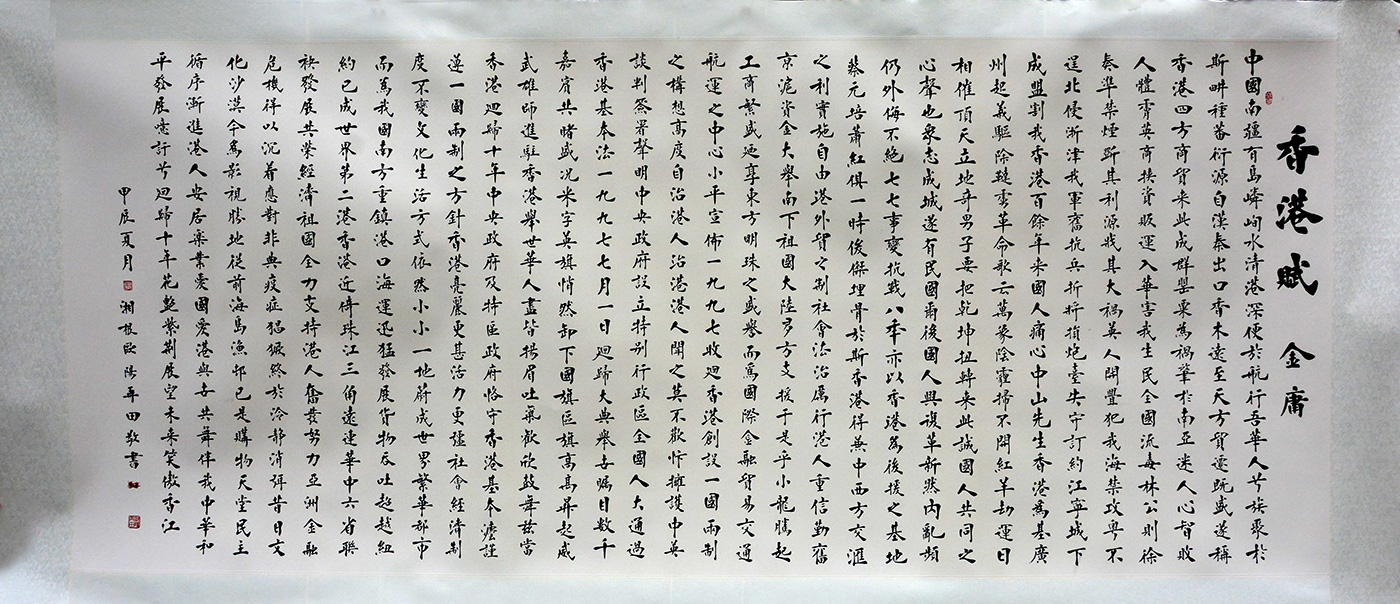 香港賦 金庸
中國南疆有島嶙峋水清港深便於航行吾華人兮族聚於
斯畊種蕃衍源自漢秦出口香木遠至天方貿遷既盛遂稱
香港四方商賈來此成群罌粟為禍肇於南亞迷人心智敗
人體膏英商挾資販運入華害我生民全國流毒林公則徐
奏準禁煙斷其利源戕其大禍英人開釁犯我海禁攻粵不
逞北侵浙津我軍奮抗兵折將損炮臺失守訂約江寧城下
成盟割我香港百餘年來國人痛心中山先生香港為基廣
州起義驅除韃虜革命歌云萬象陰霾掃不開紅羊劫運日
相催頂天立地奇男子要把乾坤扭轉來此誠國人共同之
心聲也衆志成城遂有民國爾後國人興複革新然內亂頻
仍外侮不絕七七事變抗戰八年亦以香港為後援之基地
蔡元培蕭紅俱一時俊傑埋骨於斯香港得兼中西方交滙
之利實施自由港外貿之制社會法治厲行港人重信勤奮
京滬資金大舉南下祖國大陸多方支援于是乎小龍騰起
工商繁盛廼享東方明珠之盛譽而為國際金融貿易交通
航運之中心小平宣佈一九九七收迴香港創設一國兩制
之構想高度自治港人治港港人聞之莫不歡忻擁護中英
談判簽署聲明中央政府設立特別行政區全國人大通過
香港基本法一九九七七月一日迴歸大典舉世矚目數千
嘉賓共睹盛況米字英旗悄然卸下國旗區旗高高昇起威
武雄師進駐香港舉世華人盡皆揚眉吐氣歡欣鼓舞茲當
香港迴歸十年中央政府及特區政府恪守香港基本法謹
遵一國兩制之方針香港亮麗更甚活力更彊社會經濟制
度不變文化生活方式依然小小一地蔚成世界繁華都市
而為我國南方重鎮港口海運迅猛發展貨物吞吐超越紐
約已成世界第二港香港近倚珠江三角遠連華中六省聯
袂發展共榮經濟祖國全力支持港人奮發努力亞洲金融
危機得以沉着應對非典疫症猖獗終於冷靜消弭昔日文
化沙漠今為影視勝地從前海島漁邨已是購物天堂民主
循序漸進港人安居樂業愛國愛港與世共舞伴我中華和
平發展意訏兮迴歸十年花艷紫荆展望未來笑傲香江
甲辰夏月 湘根歐陽年田敬書